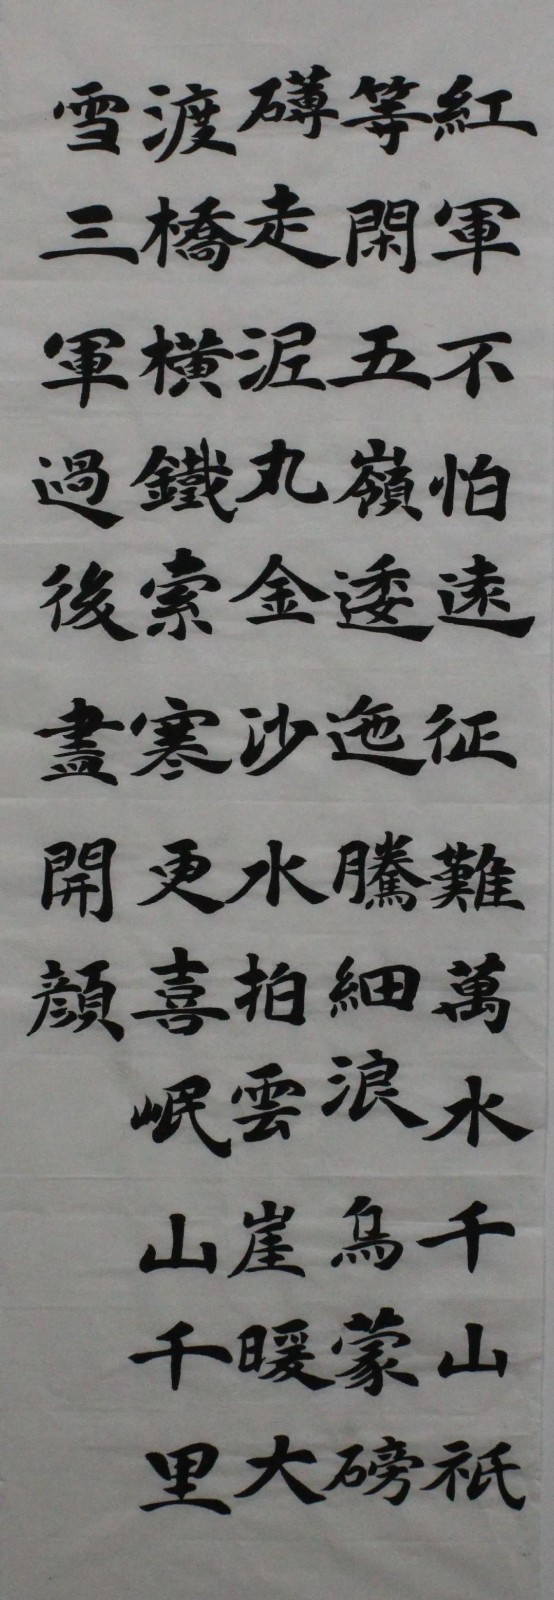 紅軍不怕遠征難萬水千山祇
等閑五嶺逶迤騰細浪烏蒙磅
礴走泥丸金沙水拍雲崖暖大
渡橋橫鐵索寒更喜岷山千里
雪三軍過後盡開顔